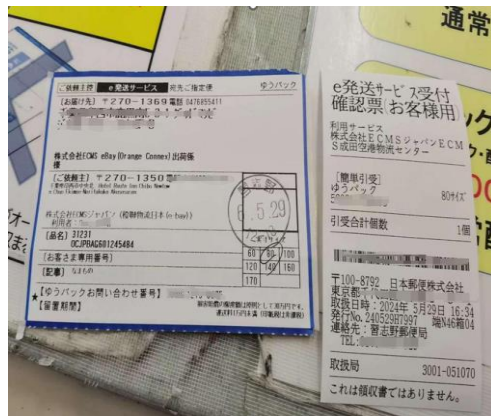 通常
ご依頼主控 e発送サービス 宛先ご指定便 ゆうパック
[お届け先] 〒270-1369 電話 0476855411
株式会社ECMS eBay(Orange Connex) 出荷係
様
[ご依頼主] 〒270-1350 電話
株式会社ECMSジャパン
利用者:
[品名] 31231
OCJPBAG601245484
[お客さま専用番号]
[記事] なまもの
★【ゆうパックお問い合わせ番号】
【留置期間】
6.5.29
60 80 100
120 140 160
170
e発送サービス受付
確認票(お客様用)
利用サービス
株式会社ECMSジャパンECM
S成田空港物流センター
[簡単引受]
ゆうパック 80サイズ
引受合計個数 1個
〒100-8792 日本郵便株式会社
東京都
取扱日時:2024年 5月29日 16:34
発行No.240529H7997 端N46箱04
連絡先:習志野郵便局
TEL:
取扱局 3001-051070
これは領収書ではありません。